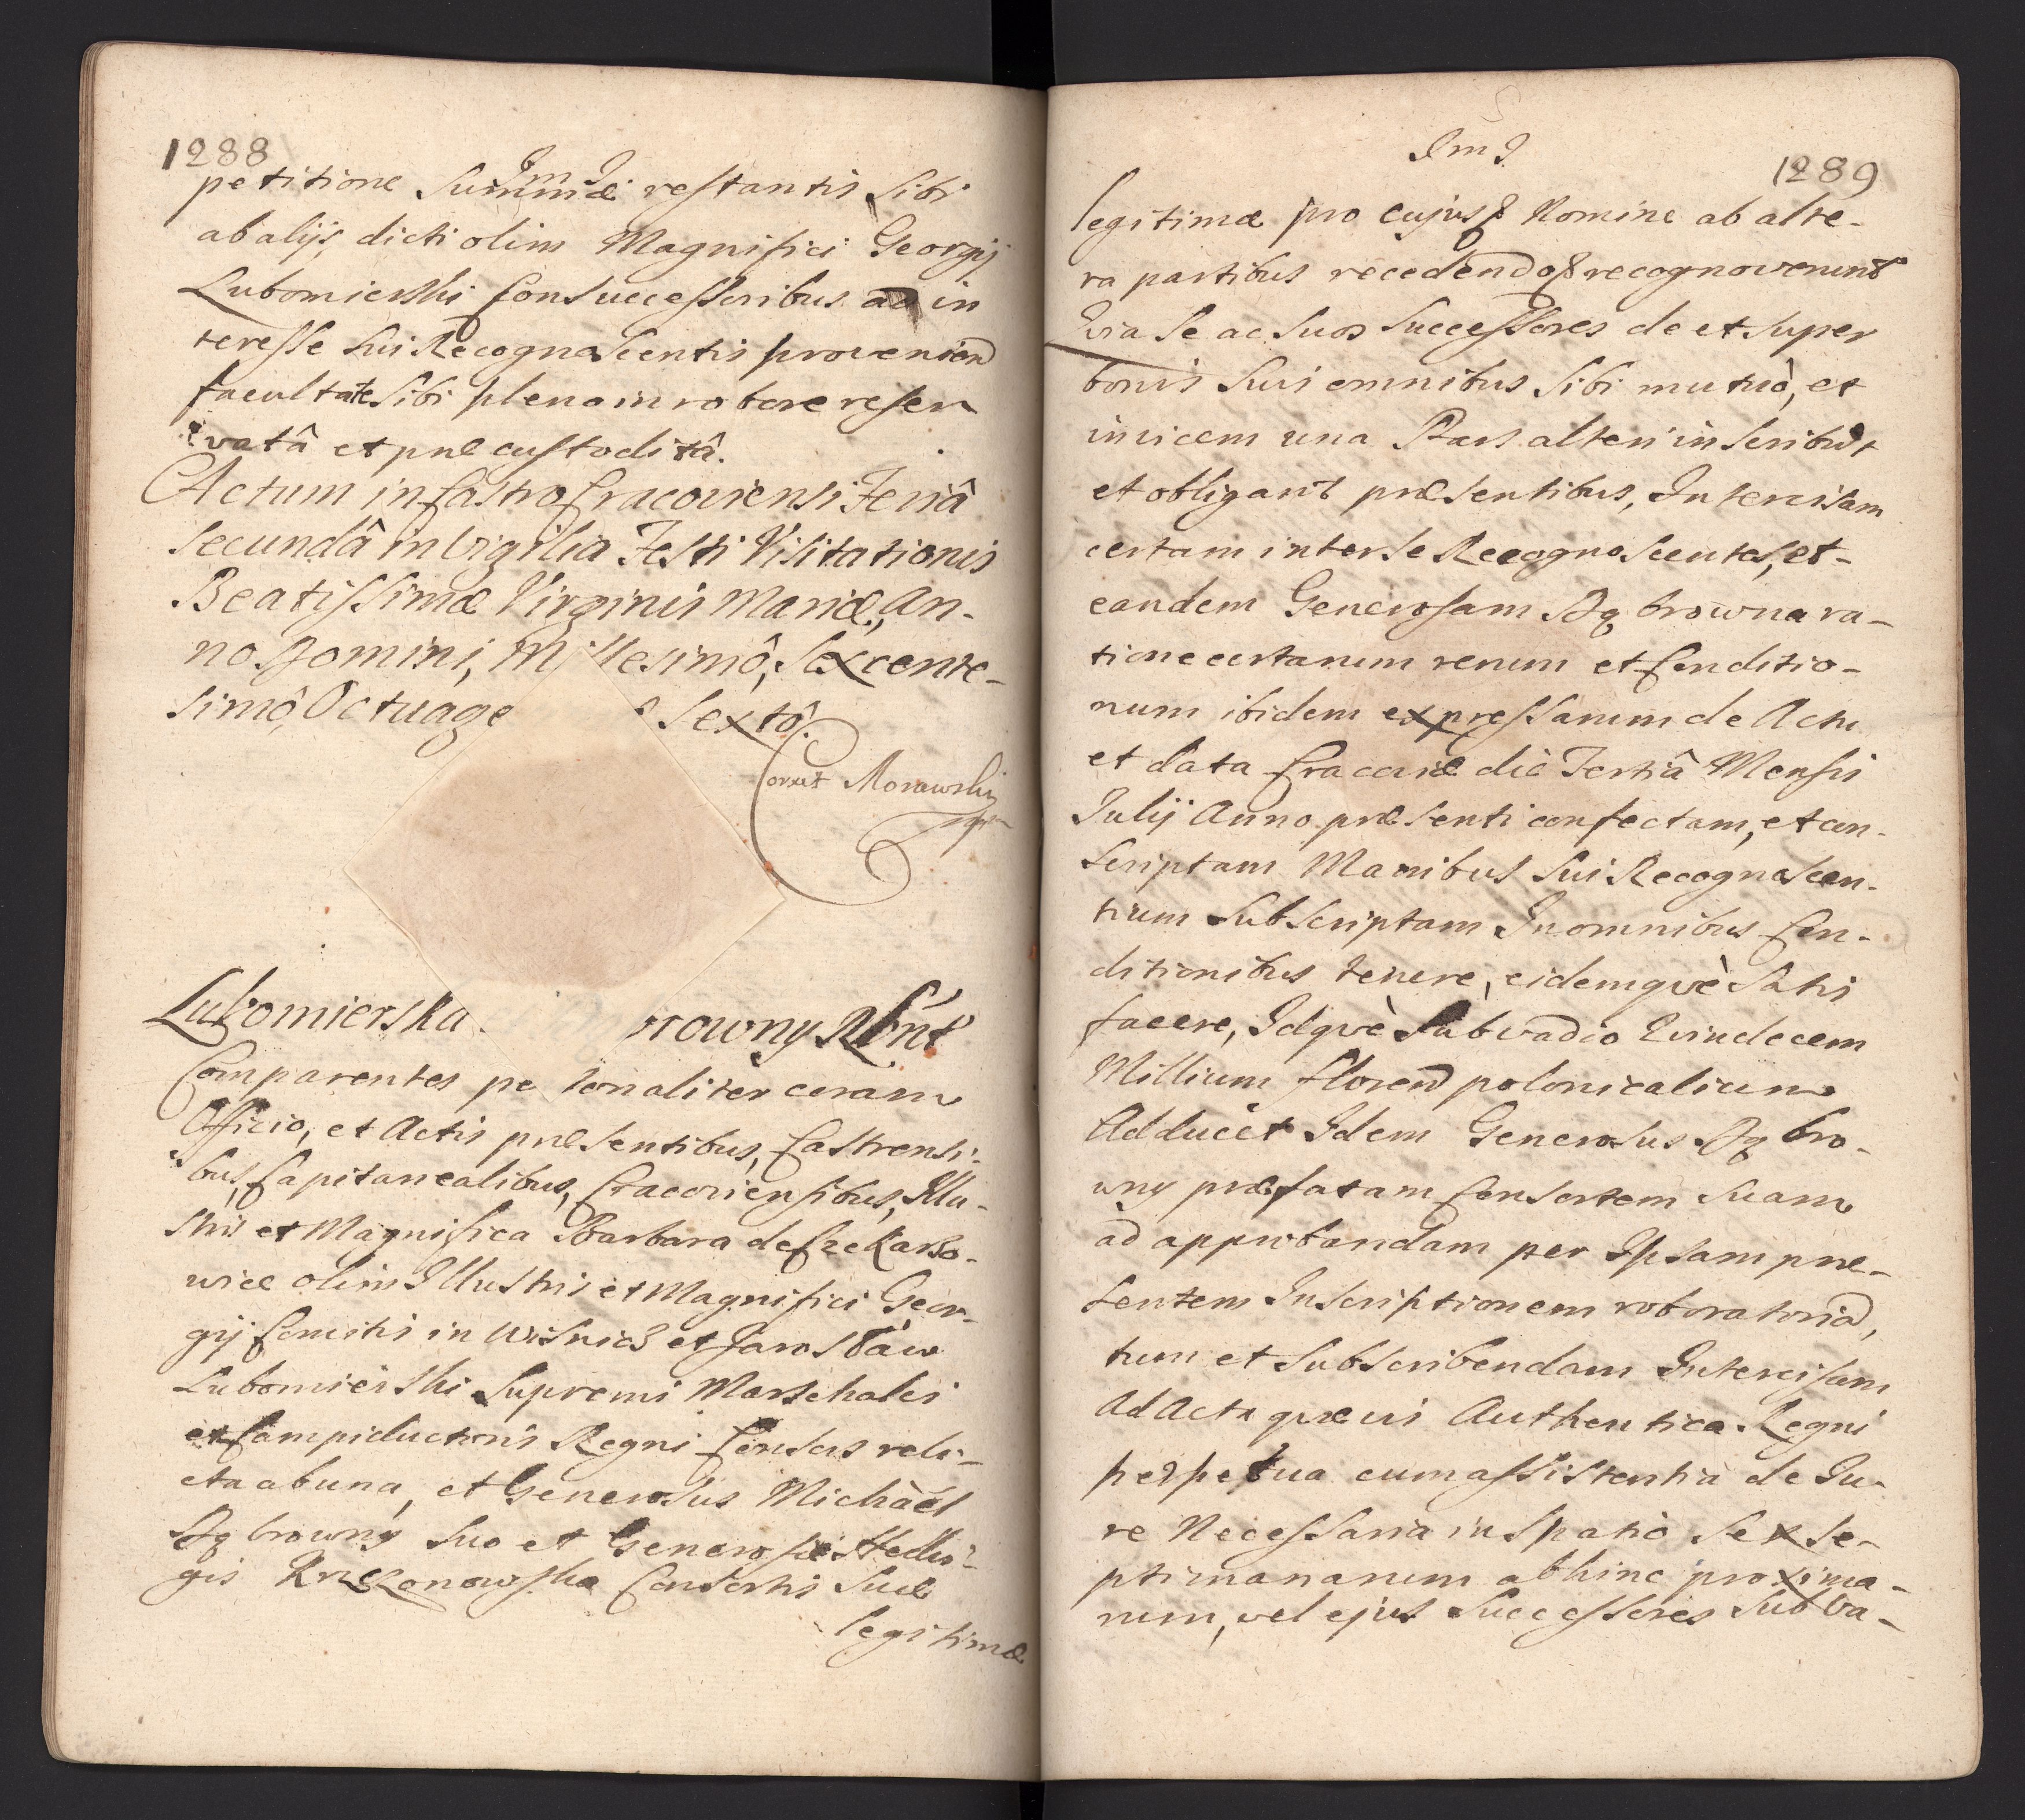 1288
Im I
petitione Summæ restantis Sibi
ab alijs dicti olim Magnifici Georgij
Lubomierski Consuccessoribus ad in
teresse Sui Recognoscentis provenien
facultate Sibi pleno in robore reser
vatâ et præcustoditâ.
Actum in Castro Cracoviensi Feriâ
Secundâ in Vigilia Festi Visitationis
Beatissimæ Virginis Mariæ, An-
no Domini, Millesimô, Sexcente-
simô, Octuage Sextô.
Corrext Morawski
Lubomierska rowny Rbnt
Comparentes pe sonaliter coram
Officio, et Actis præsentibus, Castrensi-
bus, Capitanealibus, Cracoviensibus, Illu-
stris et Magnifica Barbara de
olim Illustris et Magnifici Geor-
gij Comitis in Wisnicz et Jarosław
Lubomierski Supremi Marschalci
et Campiductoris Regni Consors reli-
cta ab una, et Generosus Michaël
Dąbrowny Suo et Generosæ Hedvi-
gis Consortis Suæ
legitimæ
Im I.
1289
legitimæ pro cujusq Nomine ab alte-
ra partibus recedendo recognoverunt
Quia Se ac Suos Successores de et Super
bonis Suis omnibus Sibi mutuò, et
invicem una Pars alteri inscribut
et obligant præsentibus, Intercisam
certam inter Se Recognoscentes, et-
eandem Generosam Dąbrowna ra-
tione certarum rerum et Conditio-
num ibidem expressarum de Actu
et data Cracoviæ die Tertiâ Mensis
Julij Anno præsenti confectam, et con-
scriptam Manibus Sui Recognoscen-
tium Subscriptam In omnibus Con-
ditionibus tenere, eidemquè Satis
facere, Idquè Sub vadio Quindecem
Millium floren polonicalium
Adducet Idem Generosus Dąbro-
wny præfatam Consortem Suam
ad approbandam per Ipsam præ-
sentem Inscriptionem roboratoria,
tum et Subscribendam Intercisam
Ad Acta quævis Authentica Regni
perpetua cum assistentia de Ju-
re Necessaria in Spatio Sex Se-
ptimanarum abhinc proxima-
rum, vel ejus Successores Sub va-